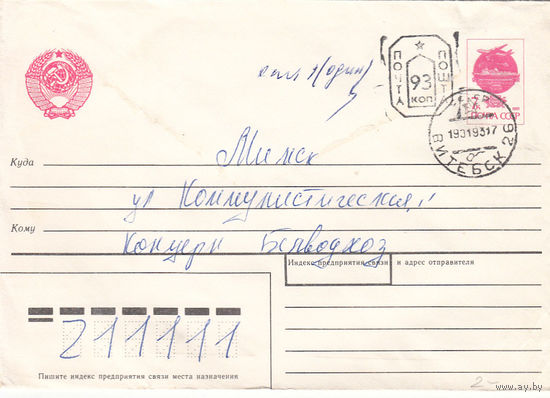 ПОЧТА
ПОШТА
93
КОП
ПОЧТА СССР
19 31 93 17
ВИТЕБСК 26
опл 1 (один)
Куда
Минск
ул Коммунистическая,
Кому
Концерн Белводхоз
Индекс предприятия связи и адрес отправителя
211111
Пишите индекс предприятия связи места назначения
2-
www.ay.by